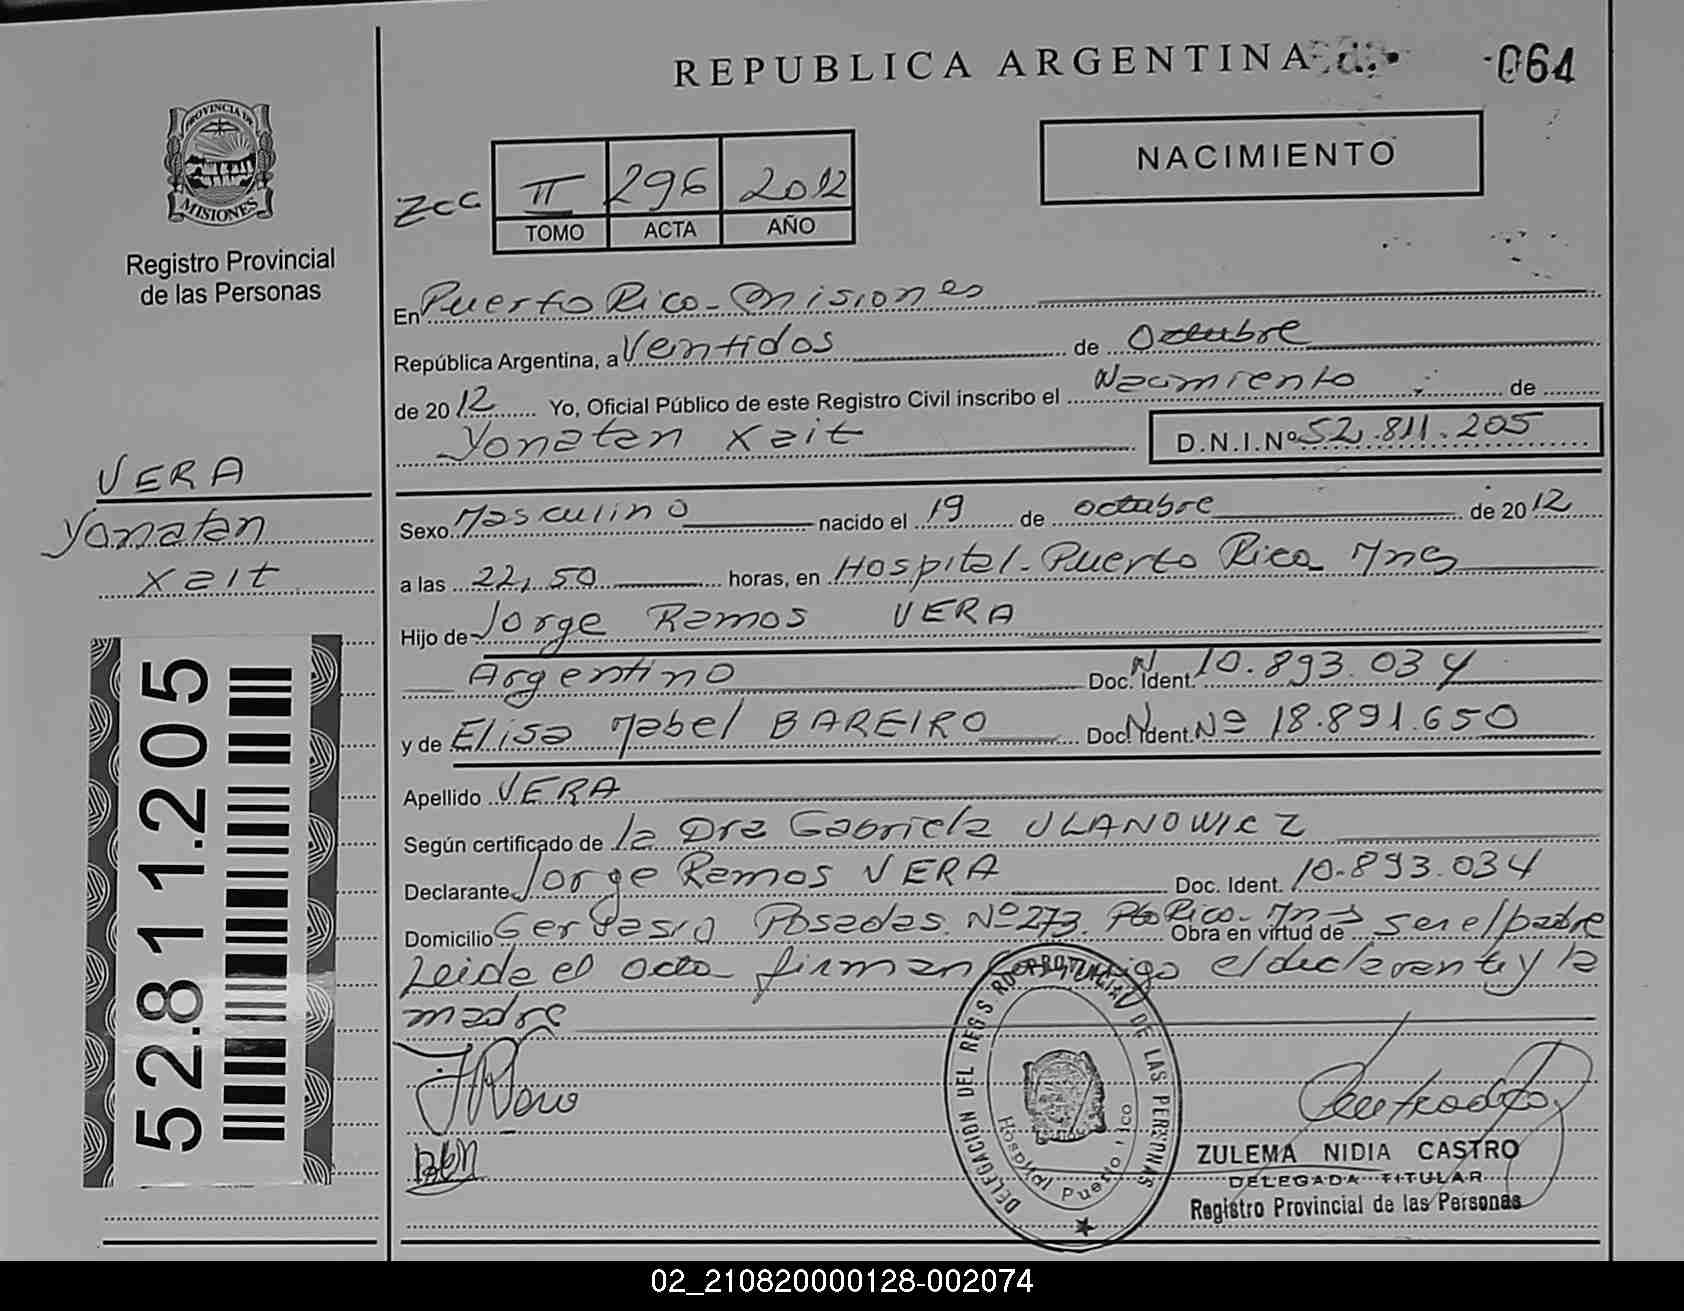 REPUBLICA ARGENTINA
064
PROVINCIA DE
MISIONES
Registro Provincial
de las Personas
NACIMIENTO
II 296 2012
TOMO ACTA AÑO
En Puerto Rico - Misiones
República Argentina, a Veintidos de Octubre
de 2012 Yo, Oficial Público de este Registro Civil inscribo el Nacimiento de
Yonatan Xait D.N.I.Nº 52.811.205
VERA
Yonatan
Xait
Sexo Masculino nacido el 19 de octubre de 2012
a las 22,50 horas, en Hospital - Puerto Rico Mns
Hijo de Jorge Ramos VERA
Argentino Doc. Ident. 10.893.034
y de Elisa Mabel BAREIRO Doc. Ident. Nº 18.891.650
Apellido VERA
Según certificado de la Dra Gabriela ULANOWICZ
Declarante Jorge Ramos VERA Doc. Ident. 10.893.034
Domicilio Gervasio Posadas Nº 273. Pto Rico - Mns Obra en virtud de ser el padre
Leida el acta firman conmigo el declarante y la
madre
52.811.205
DELEGACION DEL REGISTRO PROVINCIAL DE LAS PERSONAS
Hospital Puerto Rico
ZULEMA NIDIA CASTRO
DELEGADA TITULAR
Registro Provincial de las Personas
02_210820000128-002074